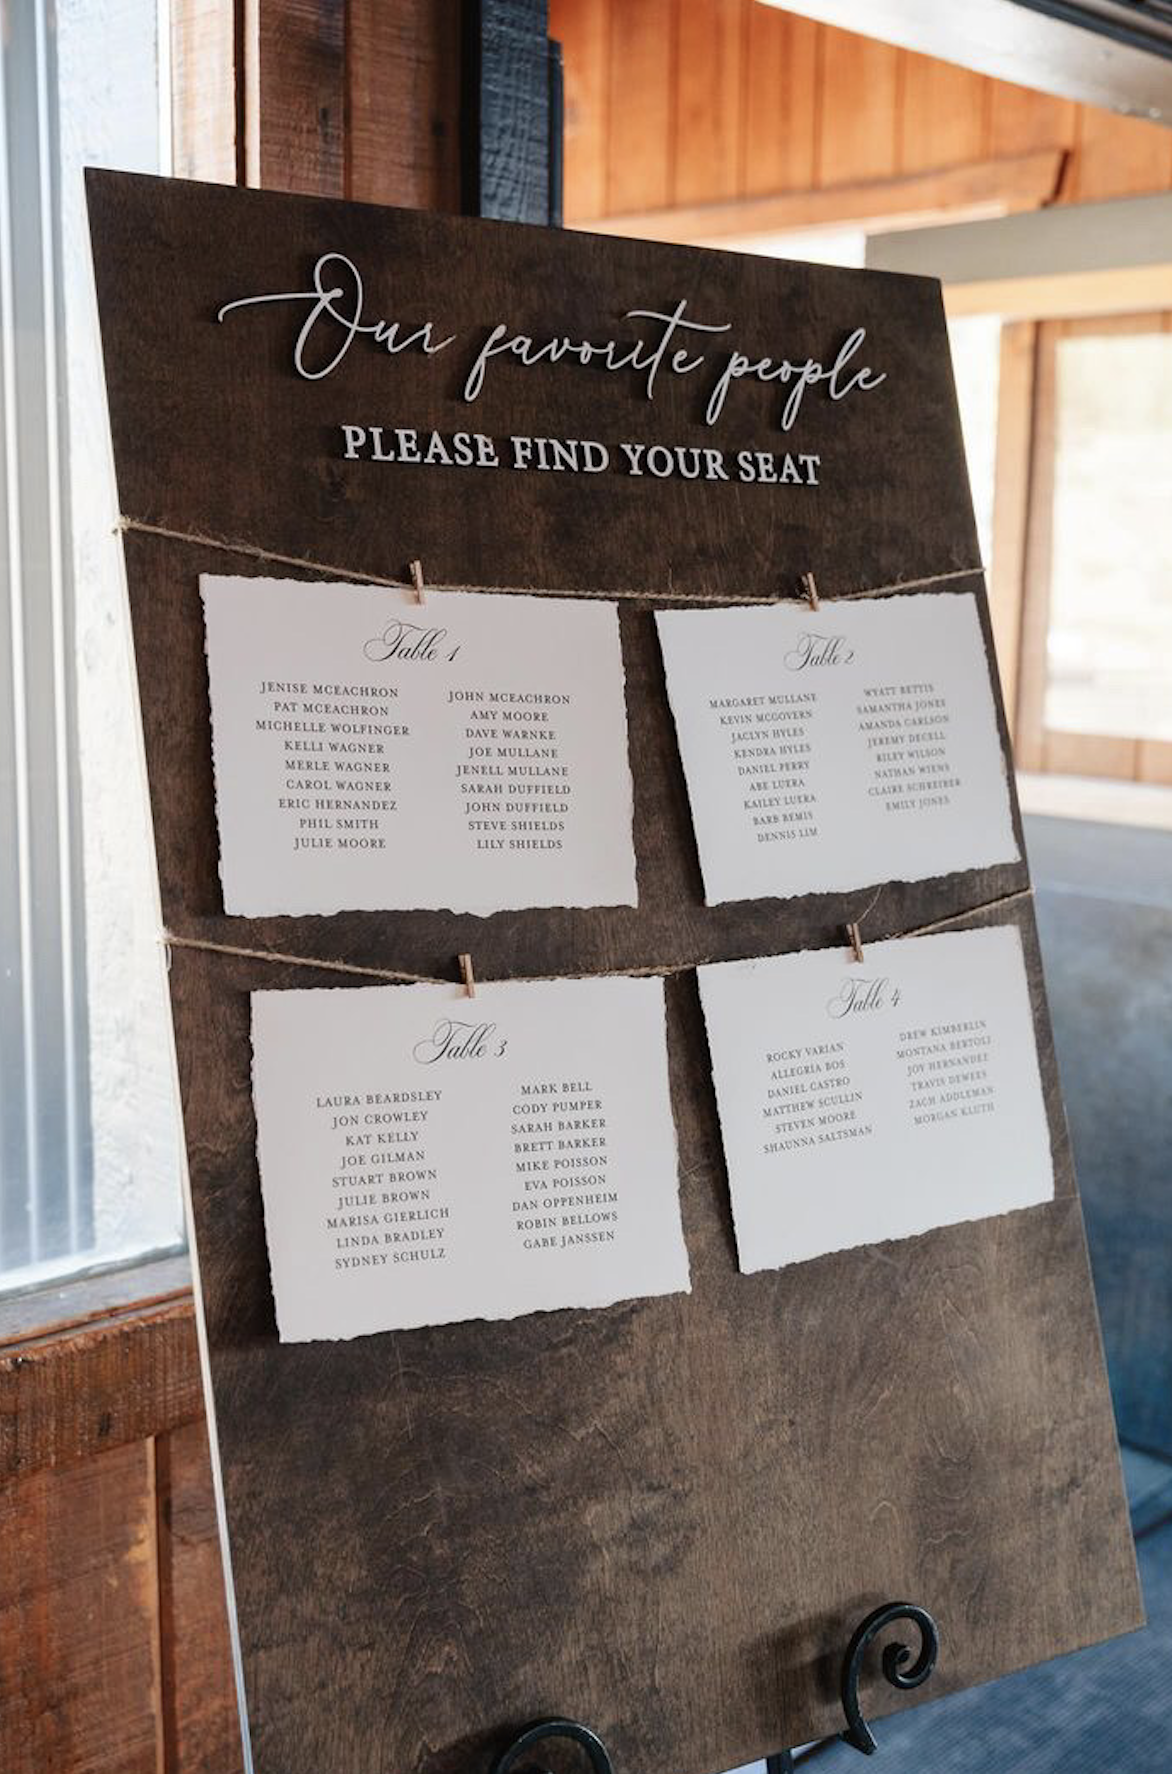 Our favorite people
PLEASE FIND YOUR SEAT
Table 1
JENISE MCEACHRON
PAT MCEACHRON
MICHELLE WOLFINGER
KELLI WAGNER
MERLE WAGNER
CAROL WAGNER
ERIC HERNANDEZ
PHIL SMITH
JULIE MOORE
JOHN MCEACHRON
AMY MOORE
DAVE WARNKE
JOE MULLANE
JENELL MULLANE
SARAH DUFFIELD
JOHN DUFFIELD
STEVE SHIELDS
LILY SHIELDS
Table 2
MARGARET MULLANE
KEVIN MCGOVERN
JACLYN HYLES
KENDRA HYLES
DANIEL PERRY
ABE LUERA
KAILEY LUERA
BARB BEMIS
DENNIS LIM
WYATT BETTIS
SAMANTHA JONES
AMANDA CARLSON
JEREMY DECELL
RILEY WILSON
NATHAN WIENS
CLAIRE SCHREIBER
EMILY JONES
Table 3
LAURA BEARDSLEY
JON CROWLEY
KAT KELLY
JOE GILMAN
STUART BROWN
JULIE BROWN
MARISA GIERLICH
LINDA BRADLEY
SYDNEY SCHULZ
MARK BELL
CODY PUMPER
SARAH BARKER
BRETT BARKER
MIKE POISSON
EVA POISSON
DAN OPPENHEIM
ROBIN BELLOWS
GABE JANSSEN
Table 4
ROCKY VARIAN
ALLEGRIA BOS
DANIEL CASTRO
MATTHEW SCULLIN
STEVEN MOORE
SHAUNNA SALTSMAN
DREW KIMBERLIN
MONTANA BERTOLI
JOY HERNANDEZ
TRAVIS DEWEES
ZACH ADDLEMAN
MORGAN KLUTH